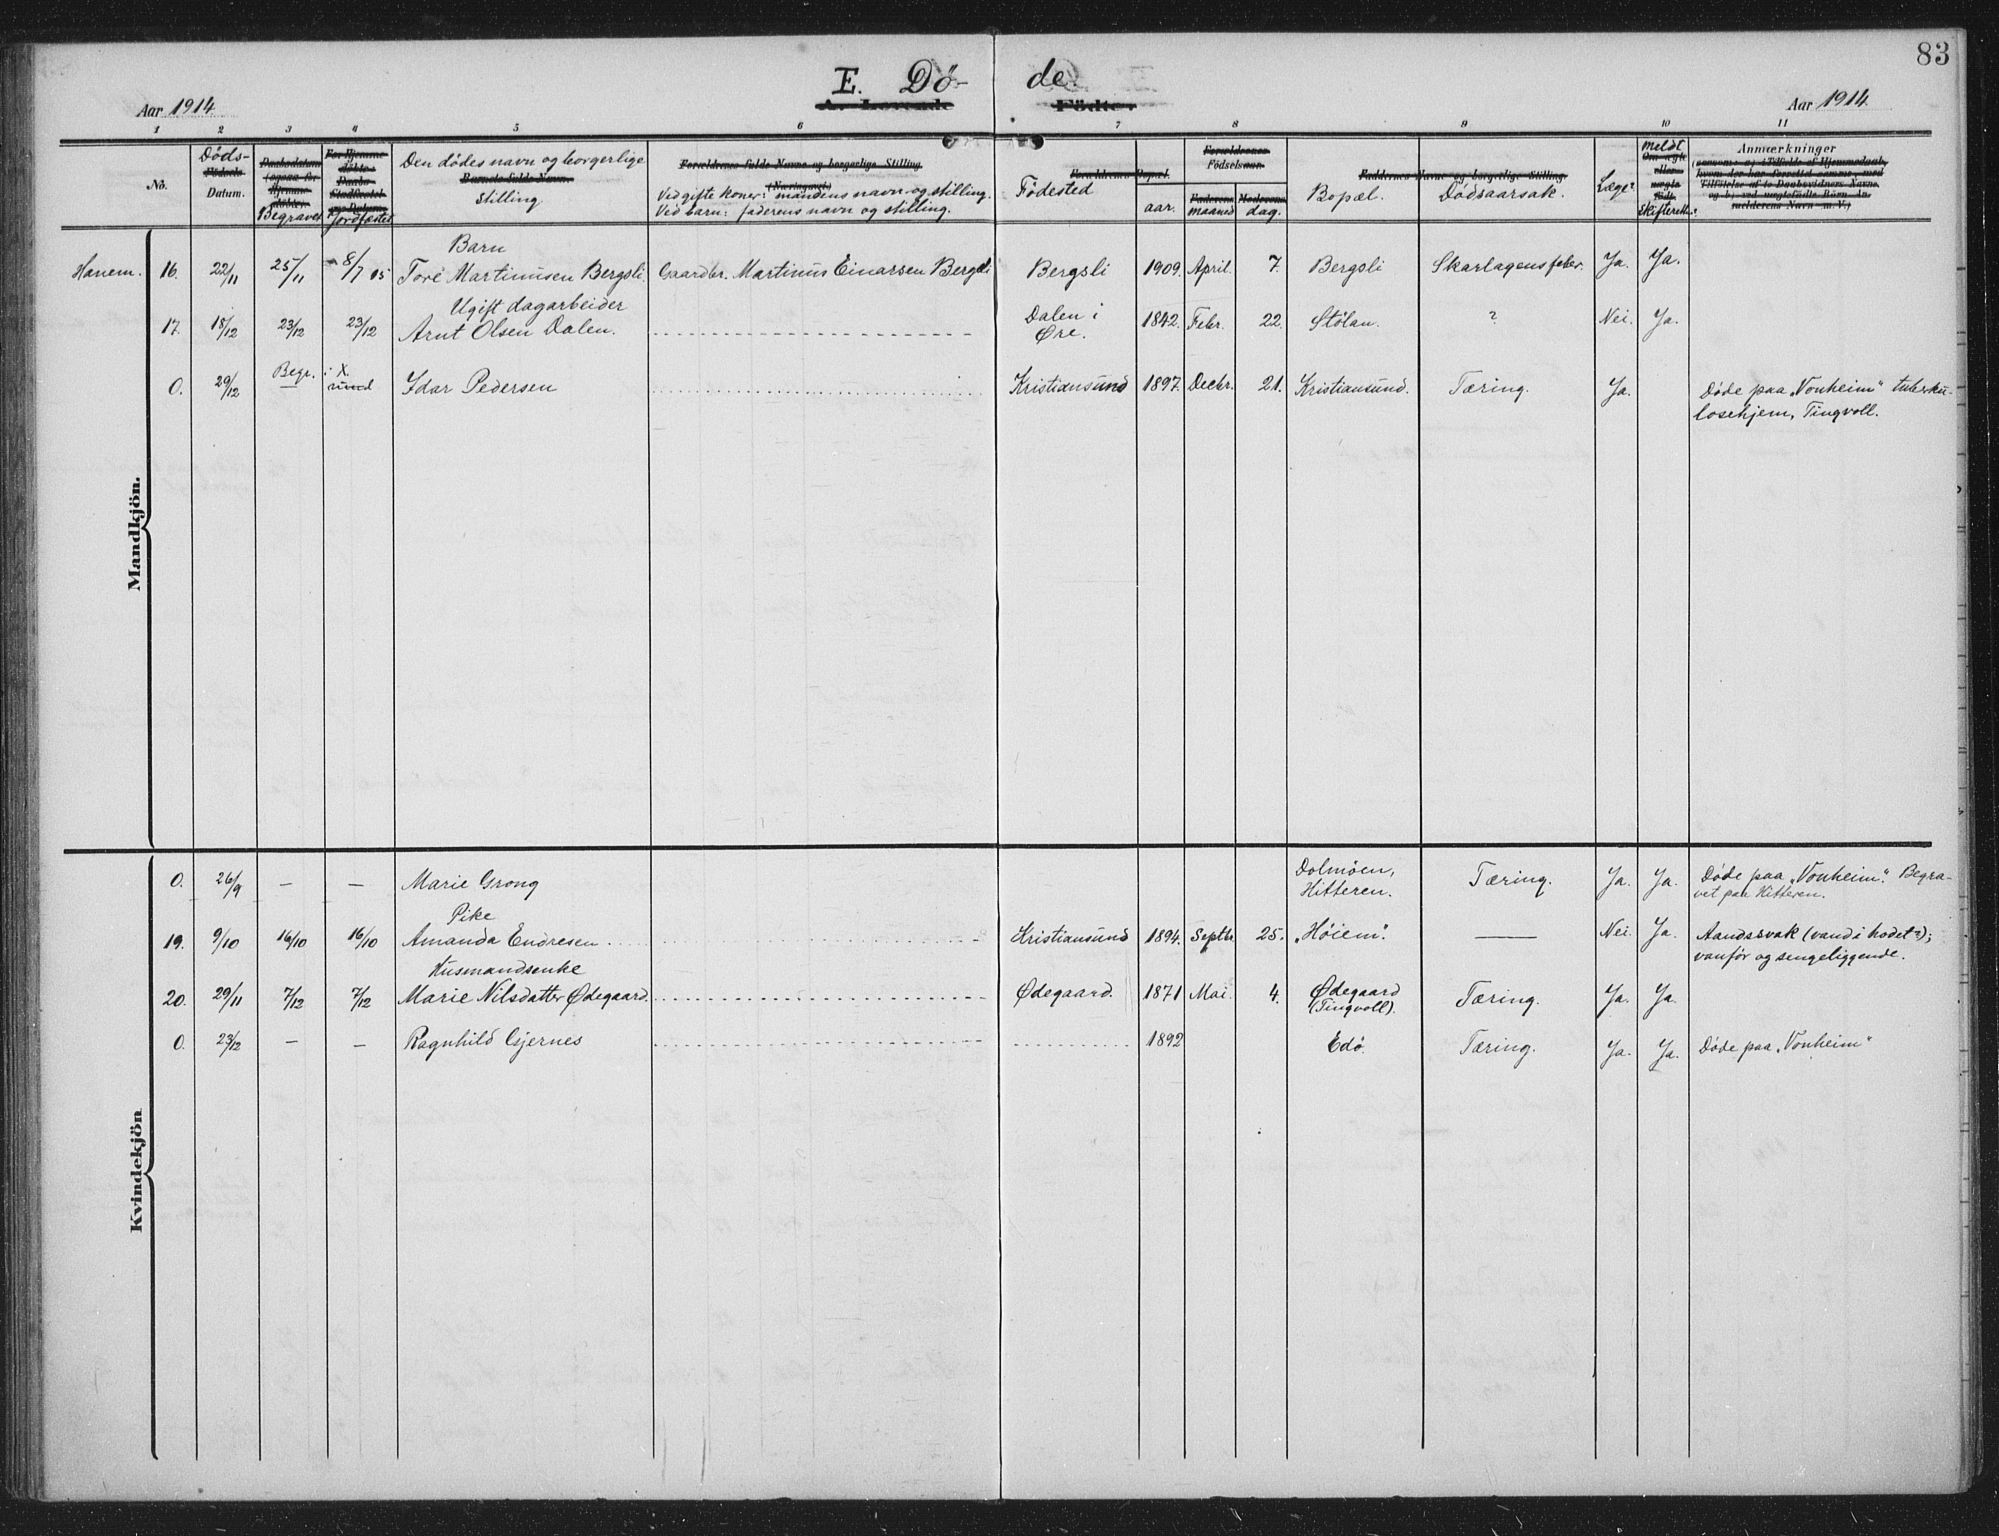 83
E. Dö- de.
A. Levende Födte.
Aar 1914 Aar 1914
1 2 3 4 5 6 7 8 9 10 11
No.
Døds-
Datum.
Begravet
Jordfæstet
Den dødes navn og borgerlige
Barnets fulde Navn.
Stilling.
Forældrenes fulde Navne og borgerlige Stilling
(Næringsvei)
Ved gifte koner: mandens navn og stilling.
Ved barn: faderens navn og stilling.
Forældrenes Bopæl.
Fødested
aar.
Forældrenes
Födselsaar.
Faderens
maaned
Moderens
dag.
Faddernes Navne og borgerlige Stilling.
Bopæl. Dødsaarsak.
Læge?
meldt
Skifterett?
Anmærkninger
Mandkjön.
Barn
Hanem. 16. 22/11 25/11 8/7 05 Tore Martinusen Bergsli. Gaardbr. Martinus Einarsen Bergsli Bergsli 1909. April. 7. Bergsli Skarlagensfeber. Ja. Ja.
Ugift dagarbeider
17. 18/12 23/12 23/12 Arnt Olsen Dalen. Dalen i Øre. 1842. Febr. 22. Stölan. ? Nei. Ja.
0. 29/12 Begr. i X.sund Idar Pedersen Kristiansund 1897. Decbr. 21. Kristiansund. Tæring. Ja. Døde paa „Vonheim" tuberku-
losehjem, Tingvoll.
Kvindekjön
0. 26/9 — — Marie Grong Dolmöen, Hitteren. Tæring. Ja. Ja. Døde paa „Vonheim". Begra-
vet paa Hitteren.
Pike
19. 9/10 16/10 16/10 Amanda Endresen Kristiansund 1894. Septbr. 25. „Höiem". — Nei. Ja. Aandssvak (vand i hodet?);
vanför og sengeliggende.
Husmandsenke
20. 29/11 7/12 7/12 Marie Nilsdatter Ødegaard. Ødegaard. 1871 Mai. 4. Ødegaard (Tingvoll). Tæring. Ja. Ja.
0. 23/12 — — Ragnhild Gjernes 1892 Edö. Tæring. Ja. Ja. Døde paa „Vonheim"